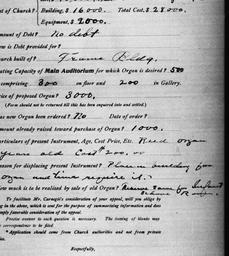 of Church? Building, $16000. Total Cost, $28000.
Equipment, $2000.
mount of Debt? No debt
ow is Debt provided for?
hurch built of? Frame Bldg.
eating Capacity of Main Auditorium for which Organ is desired? 500
comprising 300 on floor and 200 in Gallery.
Price of proposed Organ? 3000.
(Form should not be returned till this has been enquired into and settled.)
as new Organ been ordered? No Date of order?
mount already raised toward purchase of Organ? 1000.
articulars of present Instrument, Age, Cost Price, Etc. Reed organ
years old Cost $200.00
eason for displacing present Instrument?
organ and time require it.
ow much is to be realized by sale of old Organ?
To facilitate Mr. Carnegie's consideration of your appeal, will you oblige by
ng in the above, which is sent for the purpose of summarizing information and does
imply favorable consideration of the appeal.
Precise answer to each question is necessary. The sending of blanks may
correspondence to be filed
*Application should come from Church authorities and not from private
tion.
Respectfully,